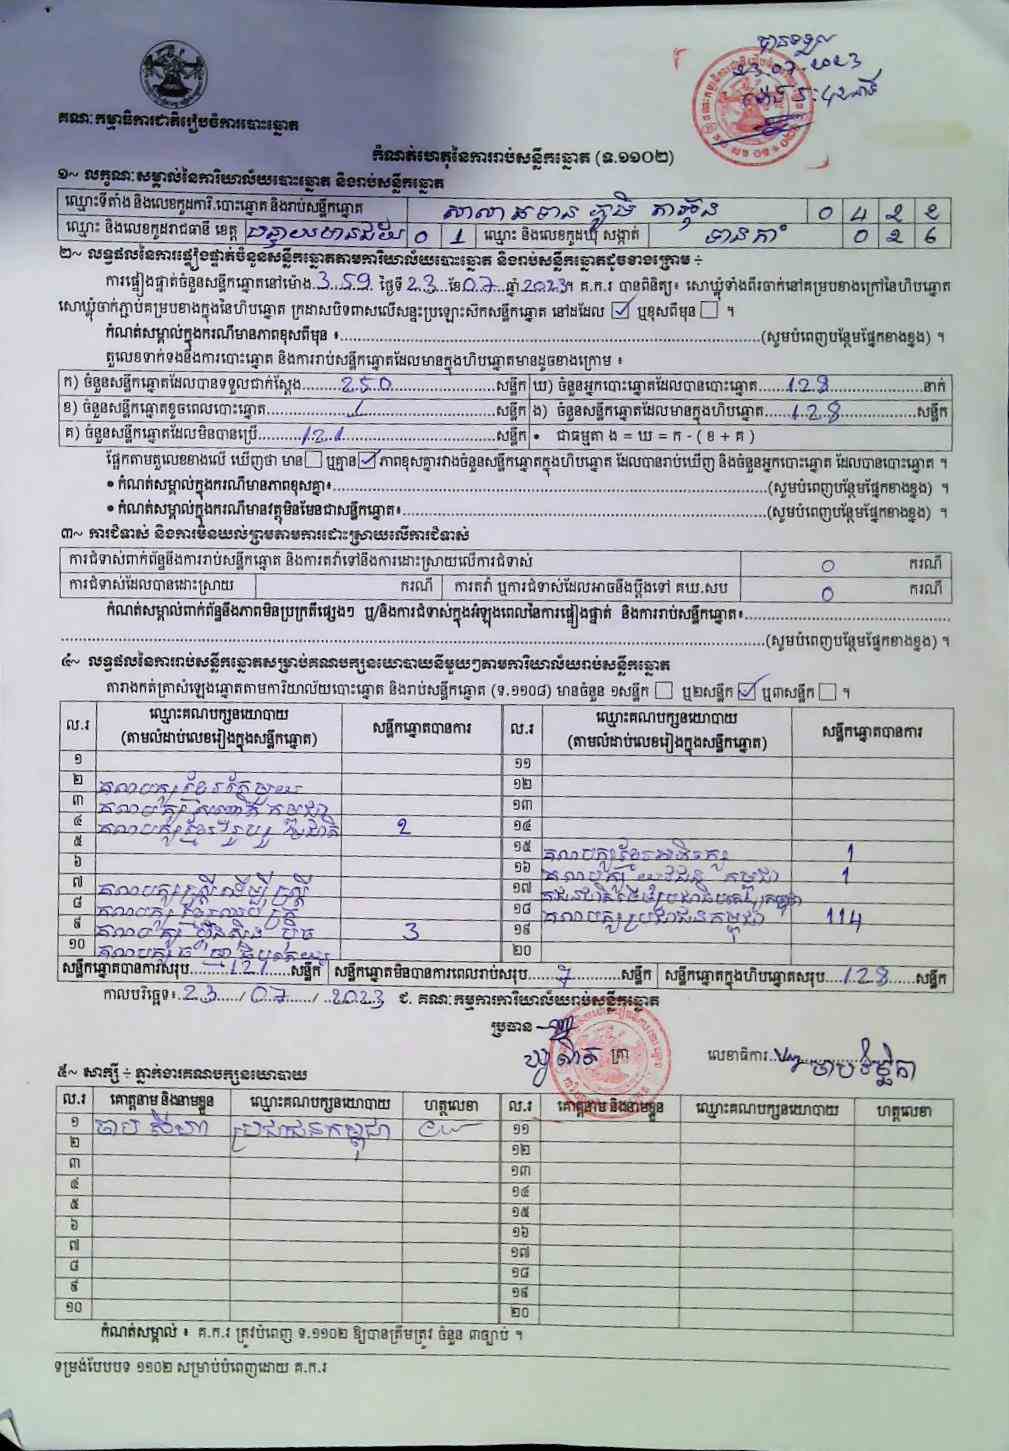 បានទទួល
23.07.2023
គណៈកម្មាធិការជាតិរៀបចំការបោះឆ្នោត
កំណត់ហេតុនៃការរាប់សន្លឹកឆ្នោត (ទ.១១០២)
១~ លក្ខណៈសម្គាល់នៃការិយាល័យបោះឆ្នោត និងរាប់សន្លឹកឆ្នោត
ឈ្មោះទីតាំង និងលេខកូដការិ.បោះឆ្នោត និងរាប់សន្លឹកឆ្នោត សាលា ភូមិ 0 4 2 2
ឈ្មោះ និងលេខកូដរាជធានី ខេត្ត បន្ទាយមានជ័យ 0 1 ឈ្មោះ និងលេខកូដឃុំ សង្កាត់ 0 2 6
២~ លទ្ធផលនៃការផ្ទៀងផ្ទាត់ចំនួនសន្លឹកឆ្នោតតាមការិយាល័យបោះឆ្នោត និងរាប់សន្លឹកឆ្នោតដូចខាងក្រោម ÷
ការផ្ទៀងផ្ទាត់ចំនួនសន្លឹកឆ្នោតនៅម៉ោង 3:59 ថ្ងៃទី 23 ខែ 07 ឆ្នាំ 2023។ គ.ក.រ បានពិនិត្យ៖ សោឃ្លុំទាំងពីរចាក់នៅគម្របខាងក្រៅនៃហិបឆ្នោត
សោឃ្លុំចាក់ភ្ជាប់គម្របខាងក្នុងនៃហិបឆ្នោត ក្រដាសបិទពាសលើសន្ទះប្រឡោះសិកសន្លឹកឆ្នោត នៅដដែល ☑ ឬខុសពីមុន ☐ ។
កំណត់សម្គាល់ក្នុងករណីមានភាពខុសពីមុន ៖ (សូមបំពេញបន្ថែមផ្នែកខាងខ្នង) ។
តួលេខទាក់ទងនឹងការបោះឆ្នោត និងការរាប់សន្លឹកឆ្នោតដែលមានក្នុងហិបឆ្នោតមានដូចខាងក្រោម ៖
ក) ចំនួនសន្លឹកឆ្នោតដែលបានទទួលជាក់ស្តែង 250 សន្លឹក ឃ) ចំនួនអ្នកបោះឆ្នោតដែលបានបោះឆ្នោត 128 នាក់
ខ) ចំនួនសន្លឹកឆ្នោតខូចពេលបោះឆ្នោត 1 សន្លឹក ង) ចំនួនសន្លឹកឆ្នោតដែលមានក្នុងហិបឆ្នោត 128 សន្លឹក
គ) ចំនួនសន្លឹកឆ្នោតដែលមិនបានប្រើ 121 សន្លឹក • ជាធម្មតា ង = ឃ = ក - ( ខ + គ )
ផ្អែកតាមតួលេខខាងលើ ឃើញថា មាន ☐ ឬគ្មាន ☑ ភាពខុសគ្នារវាងចំនួនសន្លឹកឆ្នោតក្នុងហិបឆ្នោត ដែលបានរាប់ឃើញ និងចំនួនអ្នកបោះឆ្នោត ដែលបានបោះឆ្នោត ។
• កំណត់សម្គាល់ក្នុងករណីមានភាពខុសគ្នា៖ (សូមបំពេញបន្ថែមផ្នែកខាងខ្នង) ។
• កំណត់សម្គាល់ក្នុងករណីមានវត្ថុមិនមែនជាសន្លឹកឆ្នោត៖ (សូមបំពេញបន្ថែមផ្នែកខាងខ្នង) ។
៣~ ការជំទាស់ និងការមិនយល់ព្រមតាមការដោះស្រាយលើការជំទាស់
ការជំទាស់ពាក់ព័ន្ធនឹងការរាប់សន្លឹកឆ្នោត និងការតវ៉ាទៅនឹងការដោះស្រាយលើការជំទាស់ 0 ករណី
ការជំទាស់ដែលបានដោះស្រាយ ករណី ការតវ៉ា ឬការជំទាស់ដែលអាចនឹងប្តឹងទៅ គឃ.សប 0 ករណី
កំណត់សម្គាល់ពាក់ព័ន្ធនឹងភាពមិនប្រក្រតីផ្សេងៗ ឬ/និងការជំទាស់ក្នុងអំឡុងពេលនៃការផ្ទៀងផ្ទាត់ និងការរាប់សន្លឹកឆ្នោត៖
(សូមបំពេញបន្ថែមផ្នែកខាងខ្នង) ។
៤~ លទ្ធផលនៃការរាប់សន្លឹកឆ្នោតសម្រាប់គណបក្សនយោបាយនីមួយៗតាមការិយាល័យរាប់សន្លឹកឆ្នោត
តារាងកត់ត្រាសំឡេងឆ្នោតតាមការិយាល័យបោះឆ្នោត និងរាប់សន្លឹកឆ្នោត (ទ.១១០៨) មានចំនួន ១សន្លឹក ☐ ឬ២សន្លឹក ☑ ឬ៣សន្លឹក ☐ ។
ល.រ ឈ្មោះគណបក្សនយោបាយ (តាមលំដាប់លេខរៀងក្នុងសន្លឹកឆ្នោត) សន្លឹកឆ្នោតបានការ ល.រ ឈ្មោះគណបក្សនយោបាយ (តាមលំដាប់លេខរៀងក្នុងសន្លឹកឆ្នោត) សន្លឹកឆ្នោតបានការ
១ ១១
២ ១២
៣ ១៣
៤ 2 ១៤
៥ ១៥ 1
៦ ១៦ គណបក្ស យុវជន កម្ពុជា 1
៧ គណបក្សស្ត្រីដើម្បីស្ត្រី ១៧
៨ ១៨ គណបក្សប្រជាជនកម្ពុជា 114
៩ គណបក្ស ហ្វ៊ុនស៊ិនប៉ិច 3 ១៩
១០ ២០
សន្លឹកឆ្នោតបានការសរុប 121 សន្លឹក សន្លឹកឆ្នោតមិនបានការពេលរាប់សរុប 7 សន្លឹក សន្លឹកឆ្នោតក្នុងហិបឆ្នោតសរុប 128 សន្លឹក
កាលបរិច្ឆេទ៖ 23 / 07 / 2023 ជ. គណៈកម្មការការិយាល័យរាប់សន្លឹកឆ្នោត
ប្រធាន
ត្រា លេខាធិការ
៥~ សាក្សី ÷ ភ្នាក់ងារគណបក្សនយោបាយ
ល.រ គោត្តនាម និងនាមខ្លួន ឈ្មោះគណបក្សនយោបាយ ហត្ថលេខា ល.រ គោត្តនាម និងនាមខ្លួន ឈ្មោះគណបក្សនយោបាយ ហត្ថលេខា
១ ប្រជាជនកម្ពុជា ១១
២ ១២
៣ ១៣
៤ ១៤
៥ ១៥
៦ ១៦
៧ ១៧
៨ ១៨
៩ ១៩
១០ ២០
កំណត់សម្គាល់ ៖ គ.ក.រ ត្រូវបំពេញ ទ.១១០២ ឱ្យបានត្រឹមត្រូវ ចំនួន ៣ច្បាប់ ។
ទម្រង់បែបបទ ១១០២ សម្រាប់បំពេញដោយ គ.ក.រ